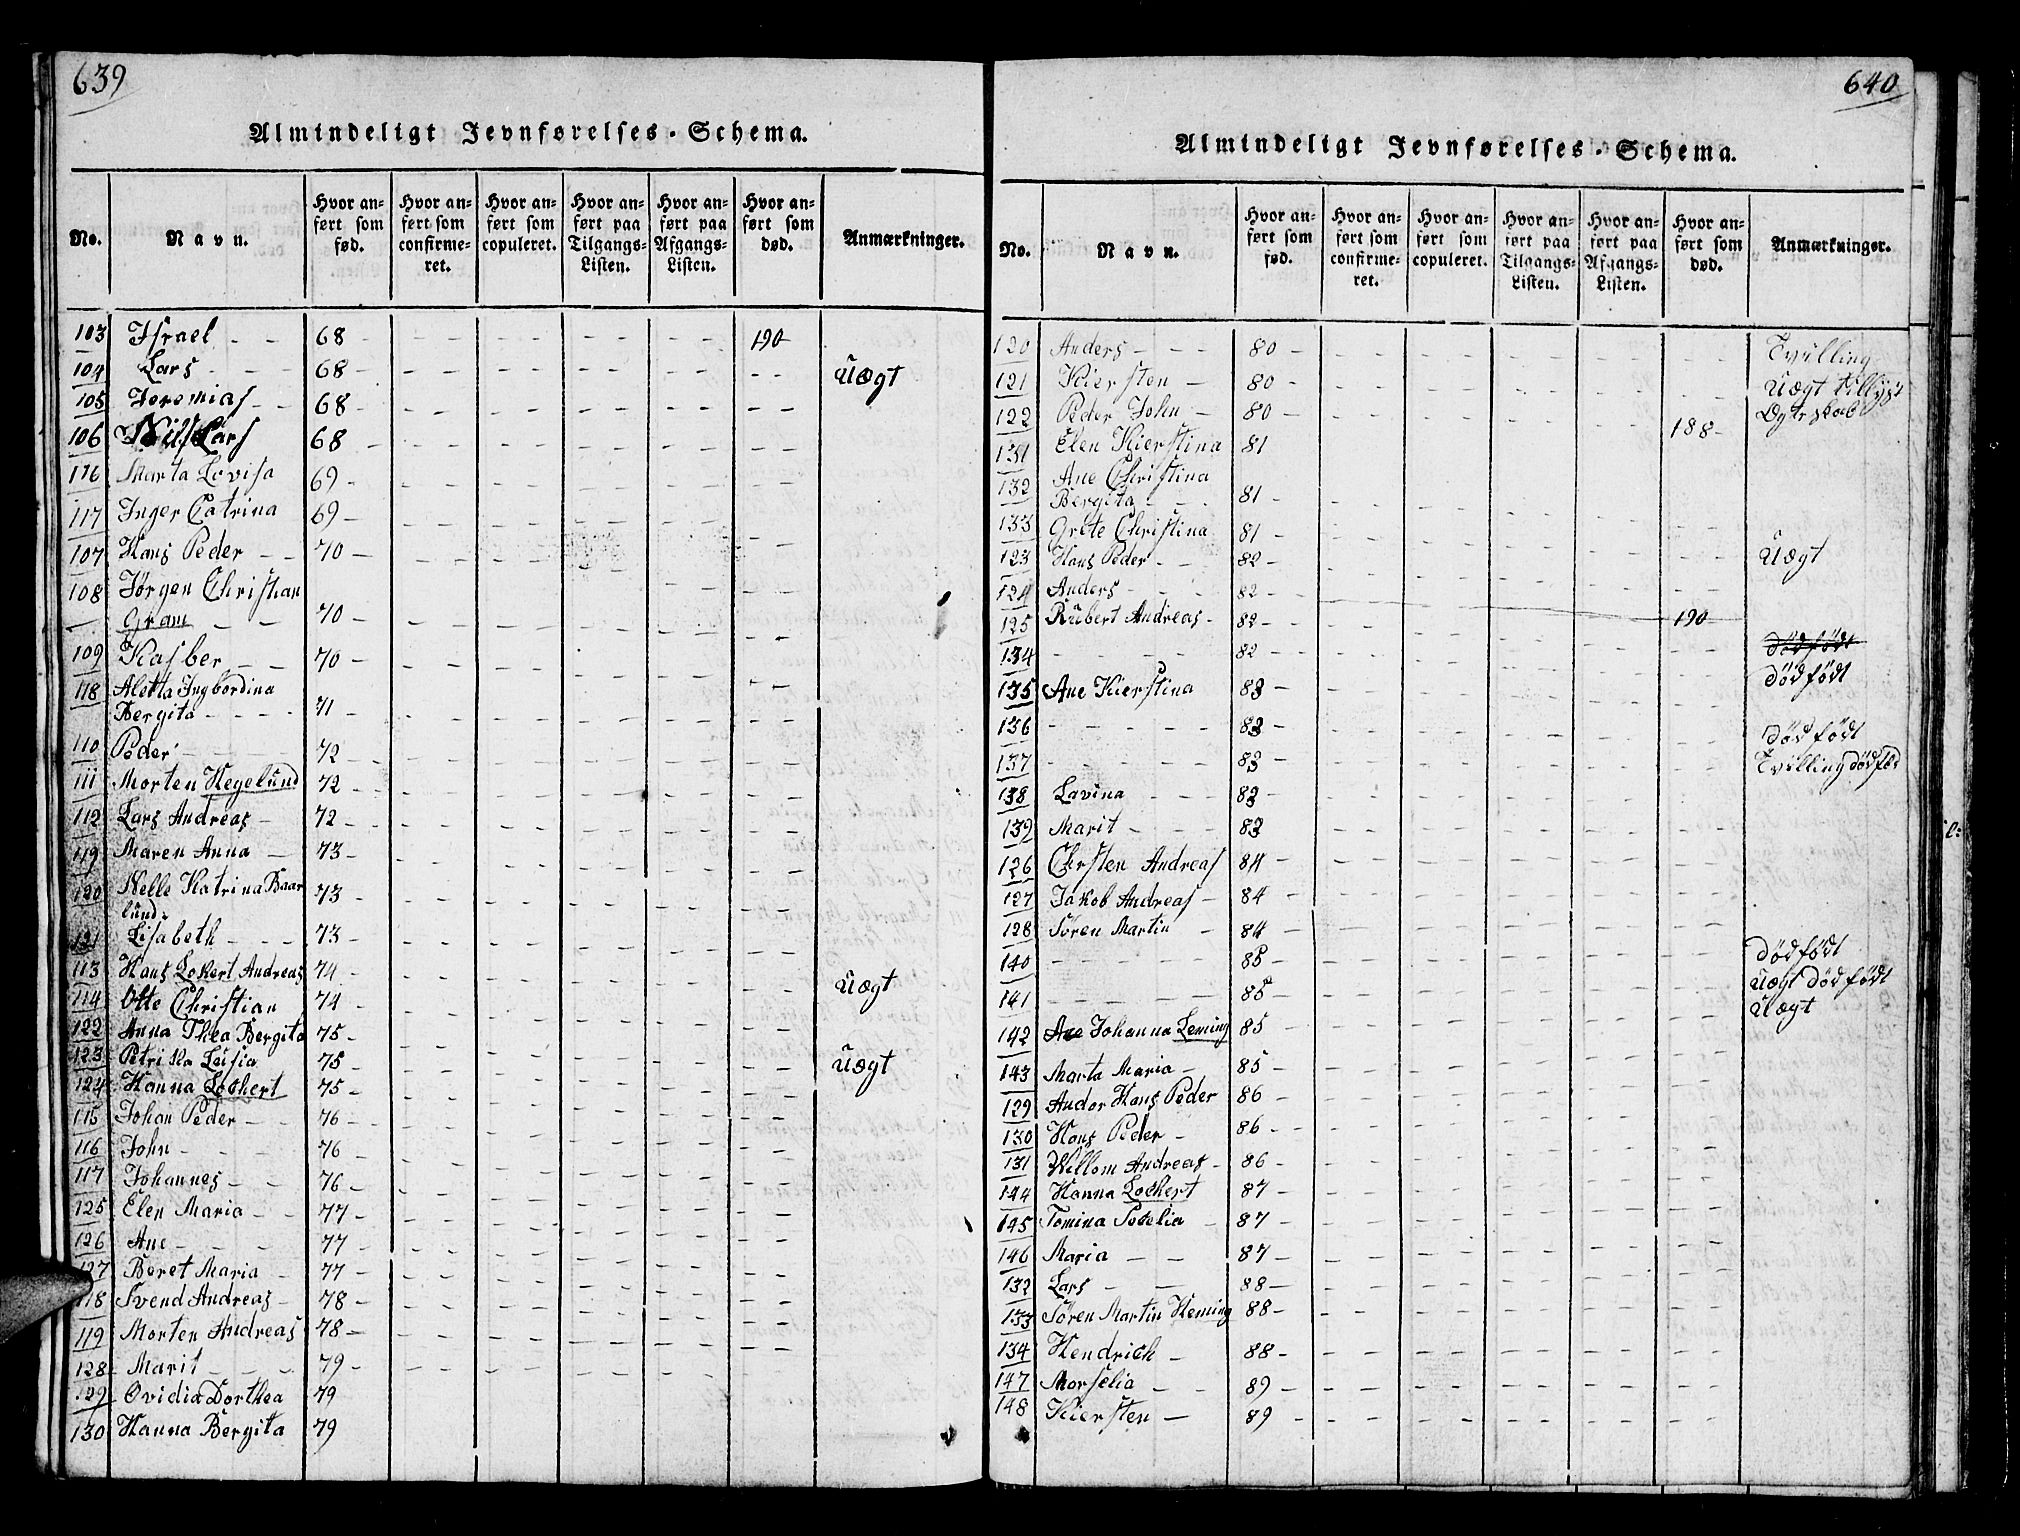 639
Almindeligt Jevnførelses-Schema.
No. Navn. Hvor anført som fød. Hvor anført som confirmeret. Hvor anført som copuleret. Hvor anført paa Tilgangs-Listen. Hvor anført paa Afgangs-Listen. Hvor anført som død. Anmærkninger.
103 Israel 68 190
104 Lars 68 Uægt
105 Jeremias 68
106 Nils Lars 68
116 Marta Lovisa 69
117 Inger Catrina 69
107 Hans Peder 70
108 Jørgen Christian
Gram 70
109 Kasber 70
118 Aletta Ingbordina
Bergita 71
110 Peder 72
111 Morten Hegelund 72
112 Lars Andreas 72
119 Maren Anna 73
120 Nelle Katrina Baar
lund 73
121 Lisabeth 73
113 Hans Lokert Andreas 74 Uægt
114 Otte Christian 74
122 Anna Thea Bergita 75
123 Petrika Lusia 75 Uægt
124 Hanna Lochert 75
115 Johan Peder 76
116 John 76
117 Johannes 76
125 Elen Maria 77
126 Ane 77
127 Beret Maria 77
118 Svend Andreas 78
119 Morten Andreas 78
128 Marit 79
129 Ovidia Dorthea 79
130 Hanna Bergita 79
640
Almindeligt Jevnførelses-Schema.
No. Navn. Hvor anført som fød. Hvor anført som confirmeret. Hvor anført som copuleret. Hvor anført paa Tilgangs-Listen. Hvor anført paa Afgangs-Listen. Hvor anført som død. Anmærkninger.
120 Anders 80 Tvilling
121 Kiersten 80 Uægt
122 Peder John 80 188
131 Elen Kierstina 81
132 Ane Christina
Bergita 81
133 Grete Christina 81
123 Hans Peder 82 Uægt
124 Anders 82
125 Rubert Andreas 82 190
134 82 dødfødt
135 Ane Kierstina 83 dødfødt
136 83 dødfødt
137 83 Tvilling dødfød
138 Lavina 83
139 Marit 83
126 Chrsten Andreas 84
127 Jakob Andreas 84
128 Søren Martin 84
140 85 dødfødt
141 85 Uægt dødfødt
142 Ane Johanna Leming 85 Uægt
143 Marta Maria 85
129 Andor Hans Peder 86
130 Hans Peder 86
131 Willom Andreas 86
144 Hanna Lochert 87
145 Tomina Petelia 87
146 Maria 87
132 Lars 88
133 Søren Martin Heming 88
134 Hendrich 88
147 Morselia 89
148 Kiersten 89